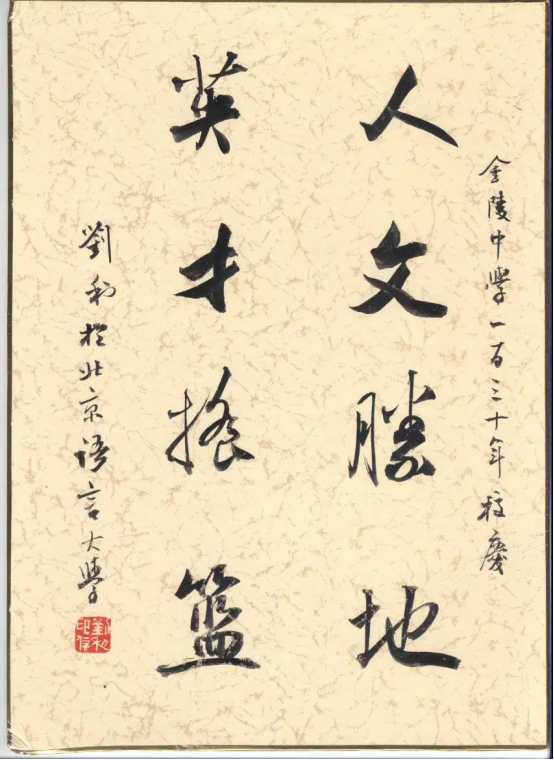 金陵中學一百三十年校慶
人文勝地
英才搖籃
劉利於北京語言大學